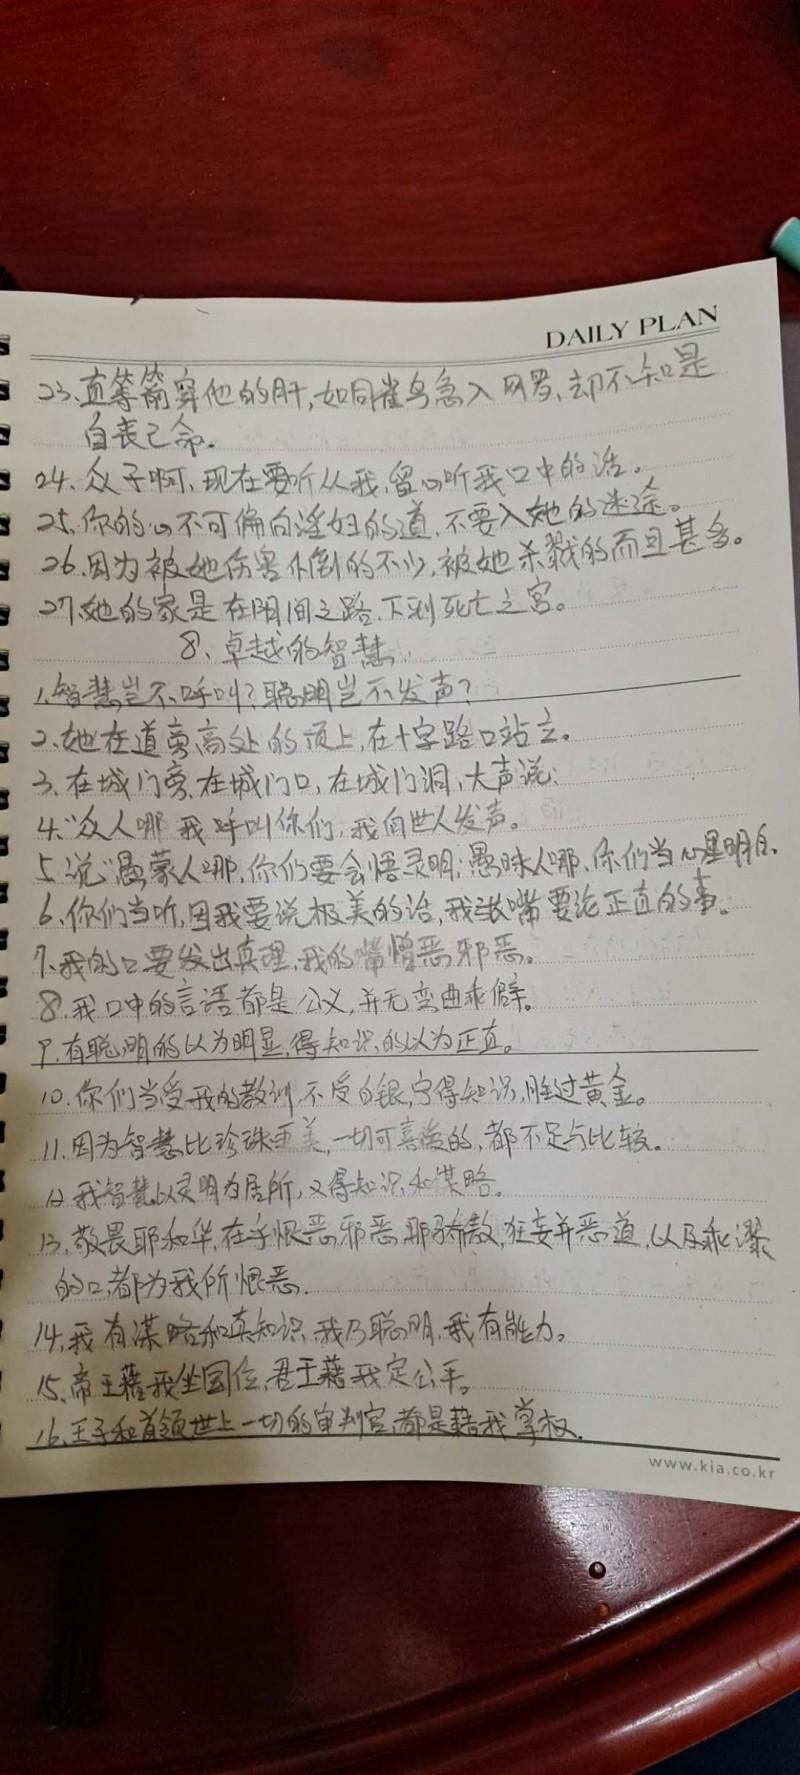 DAILY PLAN
23、直等箭穿他的肝,如同雀鸟急入网罗、却不知是
自丧己命。
24、众子啊,现在要听从我,留心听我口中的话。
25、你的心不可偏向淫妇的道,不要入她的迷途。
26、因为被她伤害仆倒的不少,被她杀戮的而且甚多。
27、她的家是在阴间之路、下到死亡之宫。
8、卓越的智慧
1、智慧岂不呼叫?聪明岂不发声?
2、她在道旁高处的顶上,在十字路口站立。
3、在城门旁、在城门口,在城门洞,大声说:
4、“众人哪 我呼叫你们,我向世人发声。
5、说“愚蒙人哪,你们要会悟灵明;愚昧人哪、你们当心里明白、
6、你们当听,因我要说极美的话,我张嘴要论正直的事。
7、我的口要发出真理,我的嘴憎恶邪恶。
8、我口中的言语都是公义,并无弯曲乖僻。
9、有聪明的以为明显,得知识的以为正直。
10、你们当受我的教训,不受白银,宁得知识,胜过黄金。
11、因为智慧比珍珠更美,一切可喜爱的,都不足与比较。
12、我智慧以灵明为居所,又得知识和谋略。
13、敬畏耶和华,在乎恨恶邪恶、那骄傲,狂妄并恶道,以及乖谬
的口,都为我所恨恶.
14、我有谋略和真知识、我乃聪明,我有能力。
15、帝王藉我坐国位、君王藉我定公平。
16、王子和首领世上一切的审判官、都是藉我掌权.
www.kia.co.kr